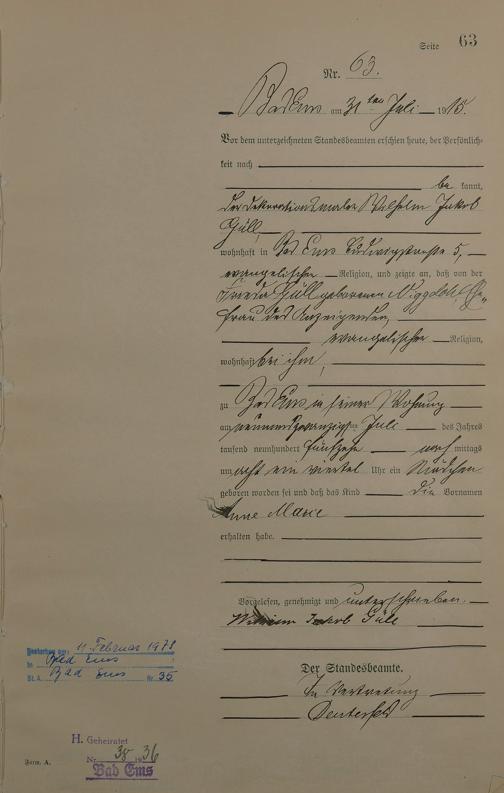 Seite 63
Nr. 63.
Bad Ems am 31 ten Juli 1915.
Vor dem unterzeichneten Standesbeamten erschien heute, der Persönlich-
keit nach
be kannt,
der Dekorationsmaler Wilhelm Jakob
Güll,
wohnhaft in Bad Ems Ludwigstraße 5,
evangelischer Religion, und zeigte an, daß von der
Frieda Güll geborenen Ehe-
frau des Anzeigenden,
evangelischer Religion,
wohnhaft bei ihm,
zu Bad Ems in seiner Wohnung
am neunundzwanzigsten Juli des Jahres
tausend neunhundert fünfzehn nach mittags
um acht ein viertel Uhr ein Mädchen
geboren worden sei und daß das Kind die Vornamen
Anne Marie
erhalten habe.
Vorgelesen, genehmigt und unterschrieben.
Wilhelm Jakob Güll
Der Standesbeamte.
In Vertretung
Gestorben am 11. Februar 1978
in Bad Ems
St.A. Bad Ems Nr. 35
H. Geheiratet
Nr. 38 1936
Bad Ems
Form. A.